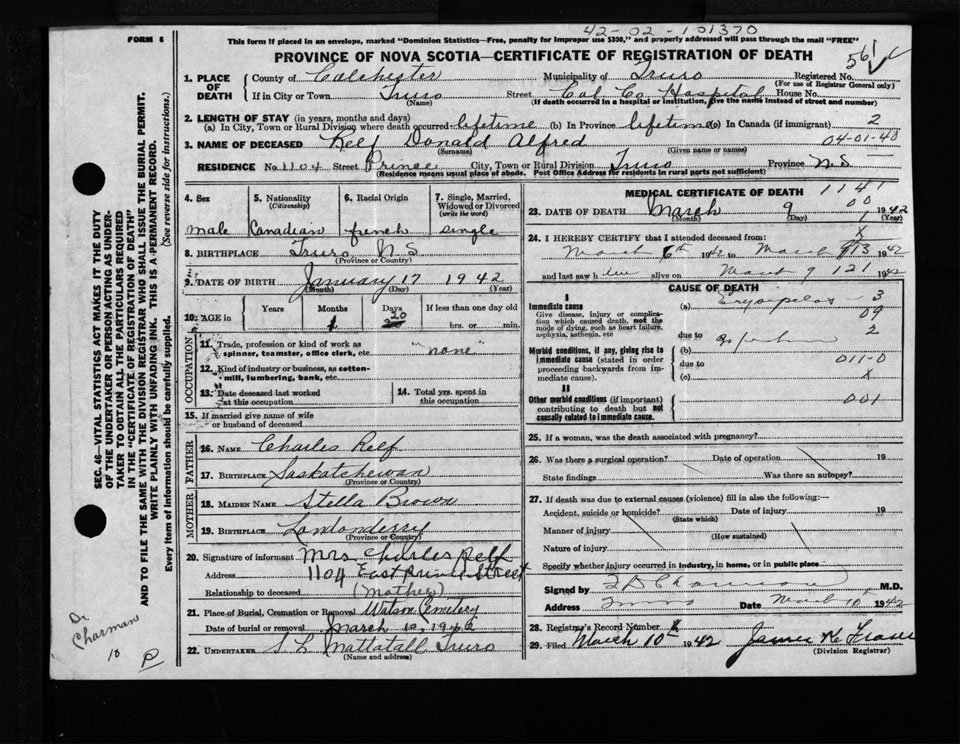 42-02-101370
FORM 6
This form if placed in an envelope, marked "Dominion Statistics—Free, penalty for improper use $300," and properly addressed will pass through the mail "FREE"
PROVINCE OF NOVA SCOTIA—CERTIFICATE OF REGISTRATION OF DEATH
561
1. PLACE OF DEATH
County of Colchester Municipality of Truro Registered No.
(For use of Registrar General only)
If in City or Town Truro Street Col Co Hospital House No.
(Name) (If death occurred in a hospital or institution, give the name instead of street and number)
2. LENGTH OF STAY (in years, months and days)
(a) In City, Town or Rural Division where death occurred lifetime (b) In Province lifetime (c) In Canada (if immigrant) 2
3. NAME OF DECEASED Relf Donald Alfred 04-01-40
(Surname) (Given name or names)
RESIDENCE No. 1104 Street Prince City, Town or Rural Division Truro Province N.S
(Residence means usual place of abode. Post Office Address for residents in rural parts not sufficient)
4. Sex
male
5. Nationality
(Citizenship)
Canadian
6. Racial Origin
french
7. Single, Married, Widowed or Divorced
(write the word)
single
8. BIRTHPLACE Truro N.S
(Province or Country)
9. DATE OF BIRTH January 17 1942
(Month) (Day) (Year)
10. AGE in
Years Months Days If less than one day
1 20 hrs. or min.
OCCUPATION
11. Trade, profession or kind of work as spinner, teamster, office clerk, etc. "none"
12. Kind of industry or business, as cotton-mill, lumbering, bank, etc.
13. Date deceased last worked at this occupation
14. Total yrs. spent in this occupation
15. If married give name of wife or husband of deceased
FATHER
16. NAME Charles Relf
17. BIRTHPLACE Saskatchewan
(Province or Country)
MOTHER
18. MAIDEN NAME Stella Brown
19. BIRTHPLACE Londonderry
(Province or Country)
20. Signature of informant Mrs Charles Relf
Address 1104 East Prince Street
Relationship to deceased (Mother)
21. Place of Burial, Cremation or Removal Watson Cemetery
Date of burial or removal March 10, 1942
22. UNDERTAKER S. L. Mattatall Truro
(Name and address)
MEDICAL CERTIFICATE OF DEATH 1141
23. DATE OF DEATH March 9 00 1942
(Month) (Day) (Year)
24. I HEREBY CERTIFY that I attended deceased from:
March 6th 1942 to March 1942
and last saw h alive on March 9 121 1942
CAUSE OF DEATH
I
Immediate cause
Give disease, injury or complication which caused death, not the mode of dying, such as heart failure, asphyxia, asthenia, etc
(a) Erysipelas 3
09
due to 2
Morbid conditions, if any, giving rise to immediate cause (stated in order proceeding backwards from immediate cause).
(b)
due to 011-0
(c) x
II
Other morbid conditions (if important) contributing to death but not causally related to immediate cause.
001
25. If a woman, was the death associated with pregnancy?
26. Was there a surgical operation? Date of operation 19
State findings Was there an autopsy?
27. If death was due to external causes (violence) fill in also the following:—
Accident, suicide or homicide? Date of injury 19
(State which)
Manner of injury
(How sustained)
Nature of injury
Specify whether injury occurred in industry, in home, or in public place
Signed by M.D.
Address Truro Date March 10 1942
28. Registrar's Record Number
29. Filed March 10th 1942 James
(Division Registrar)
SEC. 46—VITAL STATISTICS ACT MAKES IT THE DUTY
OF THE UNDERTAKER OR PERSON ACTING AS UNDERTAKER TO OBTAIN ALL THE PARTICULARS REQUIRED
IN THE "CERTIFICATE OF REGISTRATION OF DEATH"
AND TO FILE THE SAME WITH THE DIVISION REGISTRAR WHO SHALL ISSUE THE BURIAL PERMIT.
WRITE PLAINLY WITH UNFADING INK. THIS IS A PERMANENT RECORD.
Every item of information should be carefully supplied. (See reverse side for instructions.)
Dr
Charman
10
P